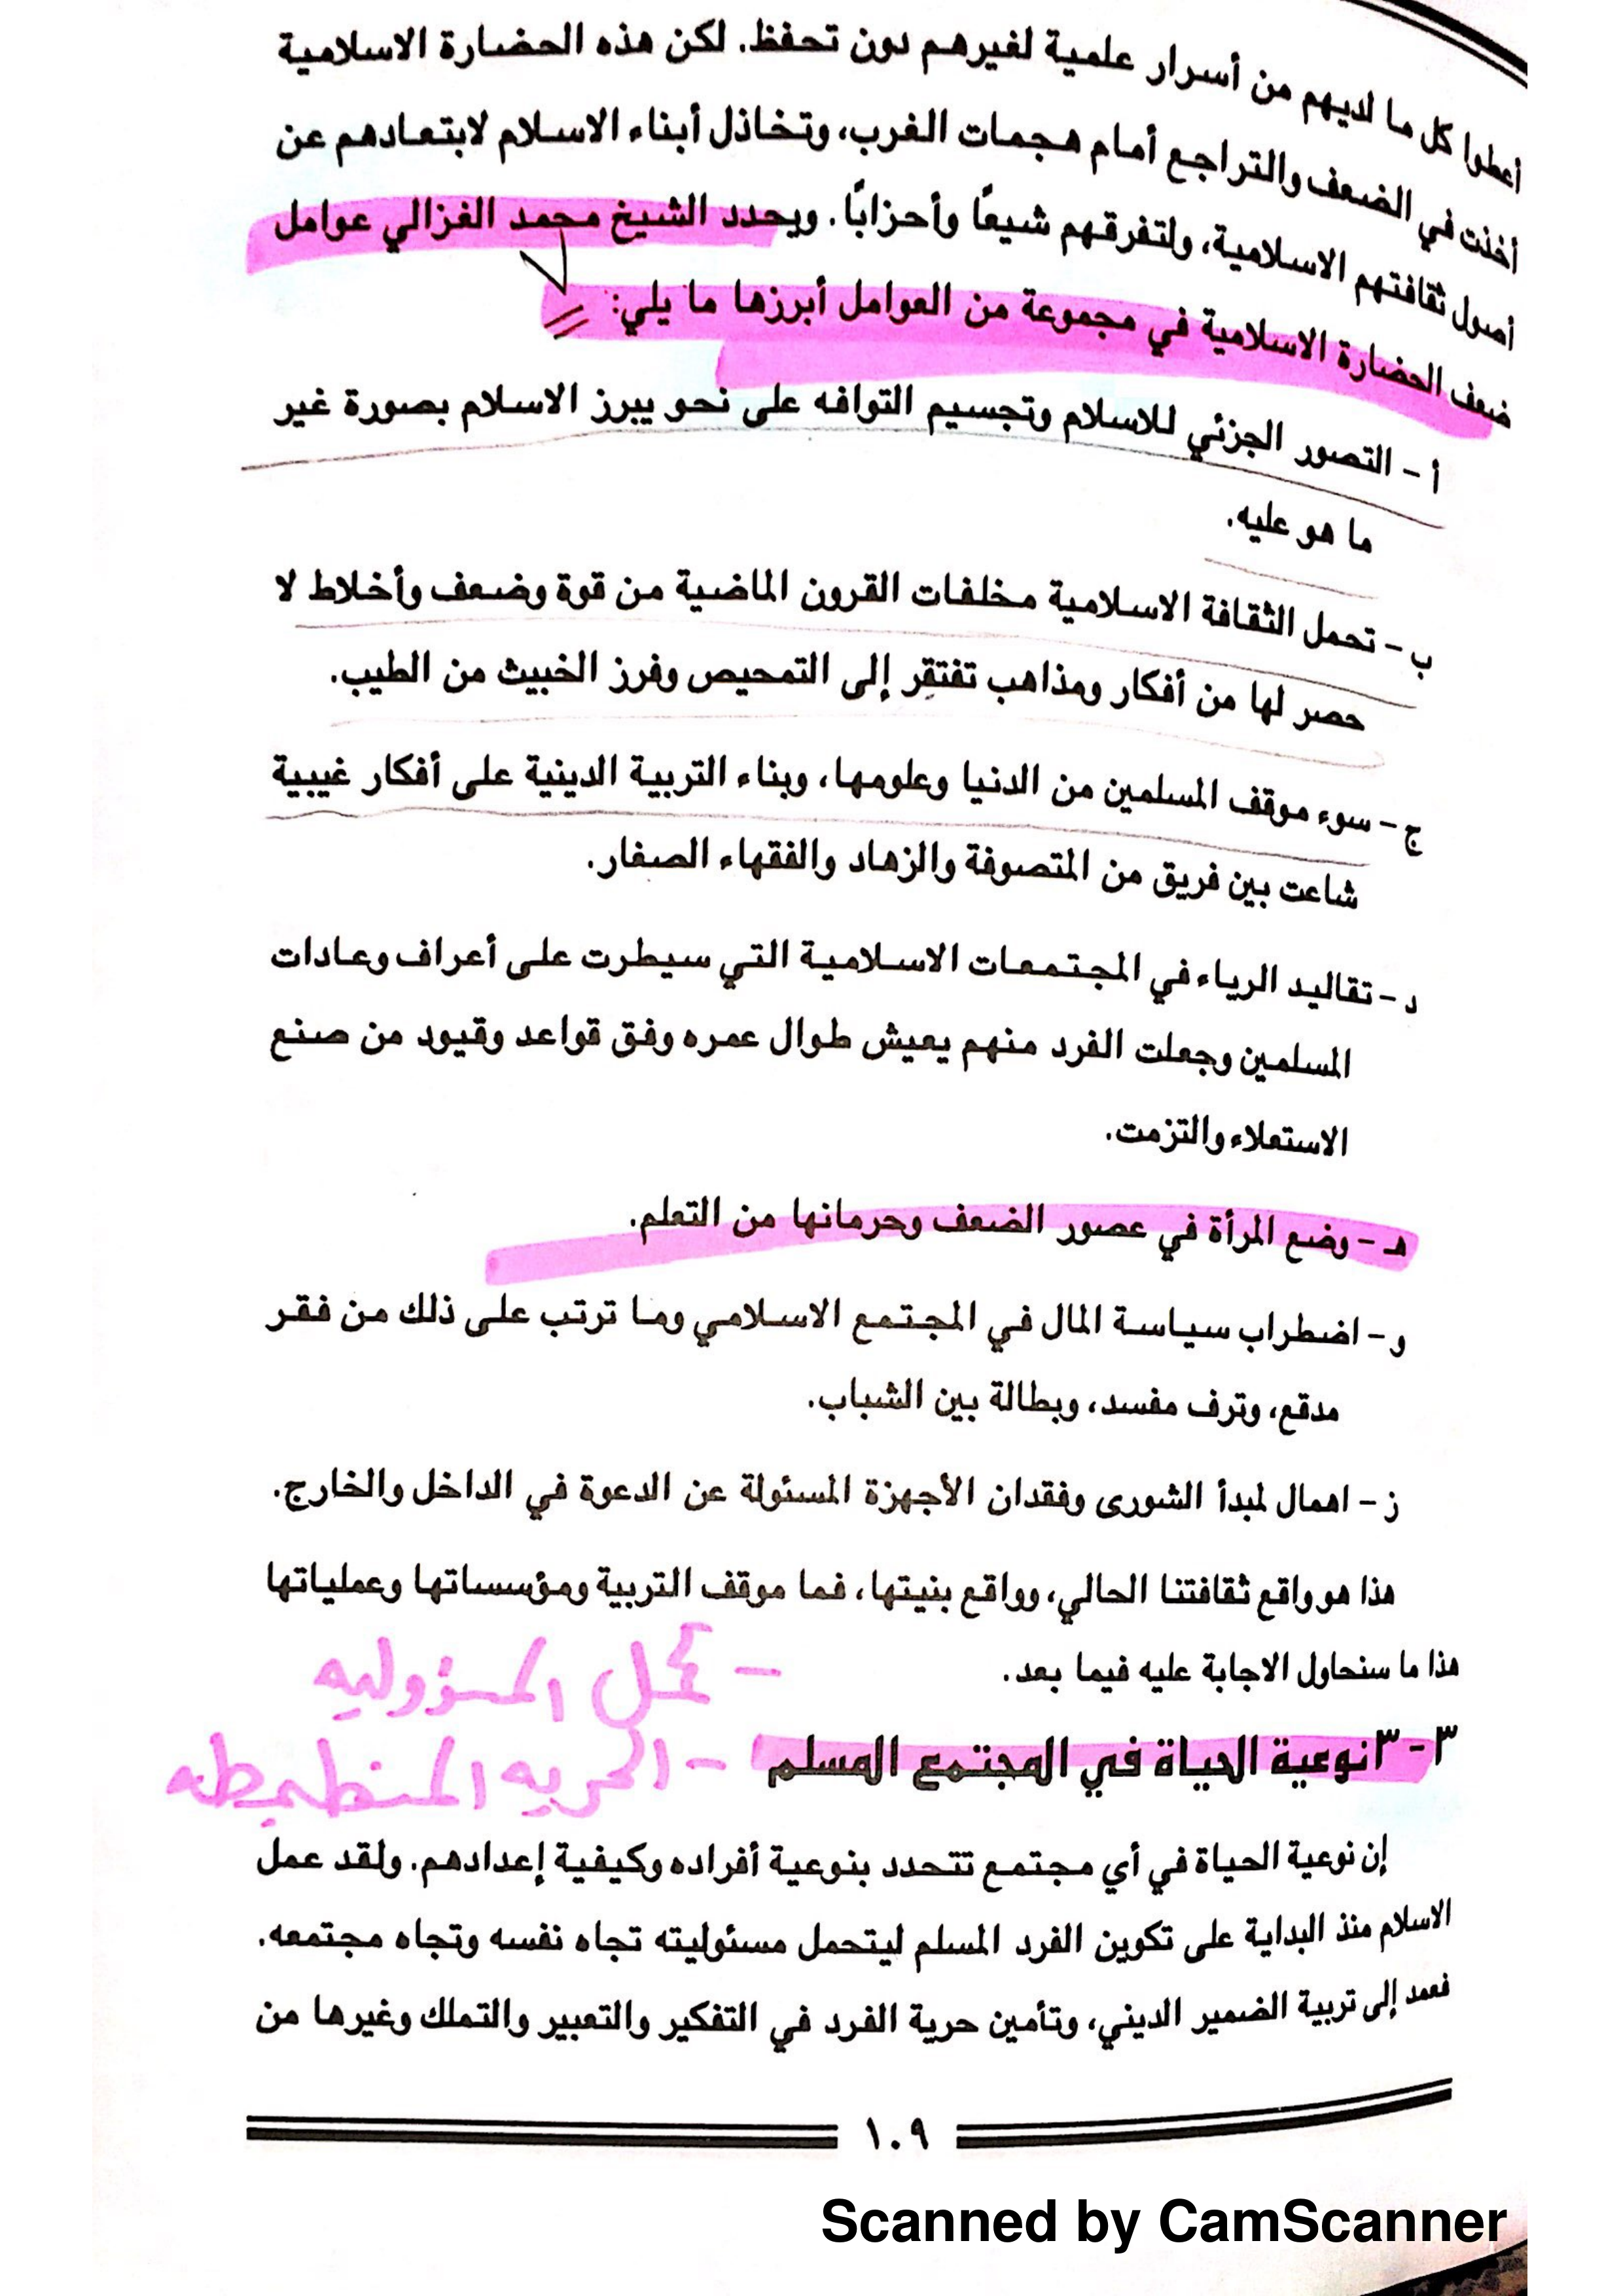 أعطوا كل ما لديهم من أسرار علمية لغيرهم دون تحفظ. لكن هذه الحضارة الاسلامية
أخذت في الضعف والتراجع أمام هجمات الغرب، وتخاذل أبناء الاسلام لابتعادهم عن
أصول ثقافتهم الاسلامية، ولتفرقهم شيعًا وأحزابًا. ويحدد الشيخ محمد الغزالي عوامل
ضعف الحضارة الاسلامية في مجموعة من العوامل أبرزها ما يلي:
أ - التصور الجزئي للاسلام وتجسيم التوافه على نحو يبرز الاسلام بصورة غير
ما هو عليه.
ب - تحمل الثقافة الاسلامية مخلفات القرون الماضية من قوة وضعف وأخلاط لا
حصر لها من أفكار ومذاهب تفتقر إلى التمحيص وفرز الخبيث من الطيب.
ج - سوء موقف المسلمين من الدنيا وعلومها، وبناء التربية الدينية على أفكار غيبية
شاعت بين فريق من المتصوفة والزهاد والفقهاء الصغار.
د - تقاليد الرياء في المجتمعات الاسلامية التي سيطرت على أعراف وعادات
المسلمين وجعلت الفرد منهم يعيش طوال عمره وفق قواعد وقيود من صنع
الاستعلاء والتزمت.
هـ - وضع المرأة في عصور الضعف وحرمانها من التعلم.
و - اضطراب سياسة المال في المجتمع الاسلامي وما ترتب على ذلك من فقر
مدقع، وترف مفسد، وبطالة بين الشباب.
ز - اهمال لمبدأ الشورى وفقدان الأجهزة المسئولة عن الدعوة في الداخل والخارج.
هذا هو واقع ثقافتنا الحالي، وواقع بنيتها، فما موقف التربية ومؤسساتها وعملياتها
هذا ما سنحاول الاجابة عليه فيما بعد.
- تحمل المسؤوليه
٣-٣ نوعية الحياة في المجتمع المسلم
- الحريه
إن نوعية الحياة في أي مجتمع تتحدد بنوعية أفراده وكيفية إعدادهم. ولقد عمل
الاسلام منذ البداية على تكوين الفرد المسلم ليتحمل مسئوليته تجاه نفسه وتجاه مجتمعه.
فعمد إلى تربية الضمير الديني، وتأمين حرية الفرد في التفكير والتعبير والتملك وغيرها من
١٠٩
Scanned by CamScanner